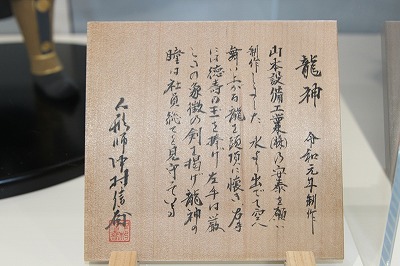 龍神
令和元年制作
山本設備工業(株)の安泰を願い
制作しました 水より出でて空へ
舞い上がる龍を頭頂に懐き 右手
には徳寿の玉を捧げ 左手は厳
しさの象徴の剣を掲げ 龍神の
瞳は社員総てを見守ている
人形師 中村信喬